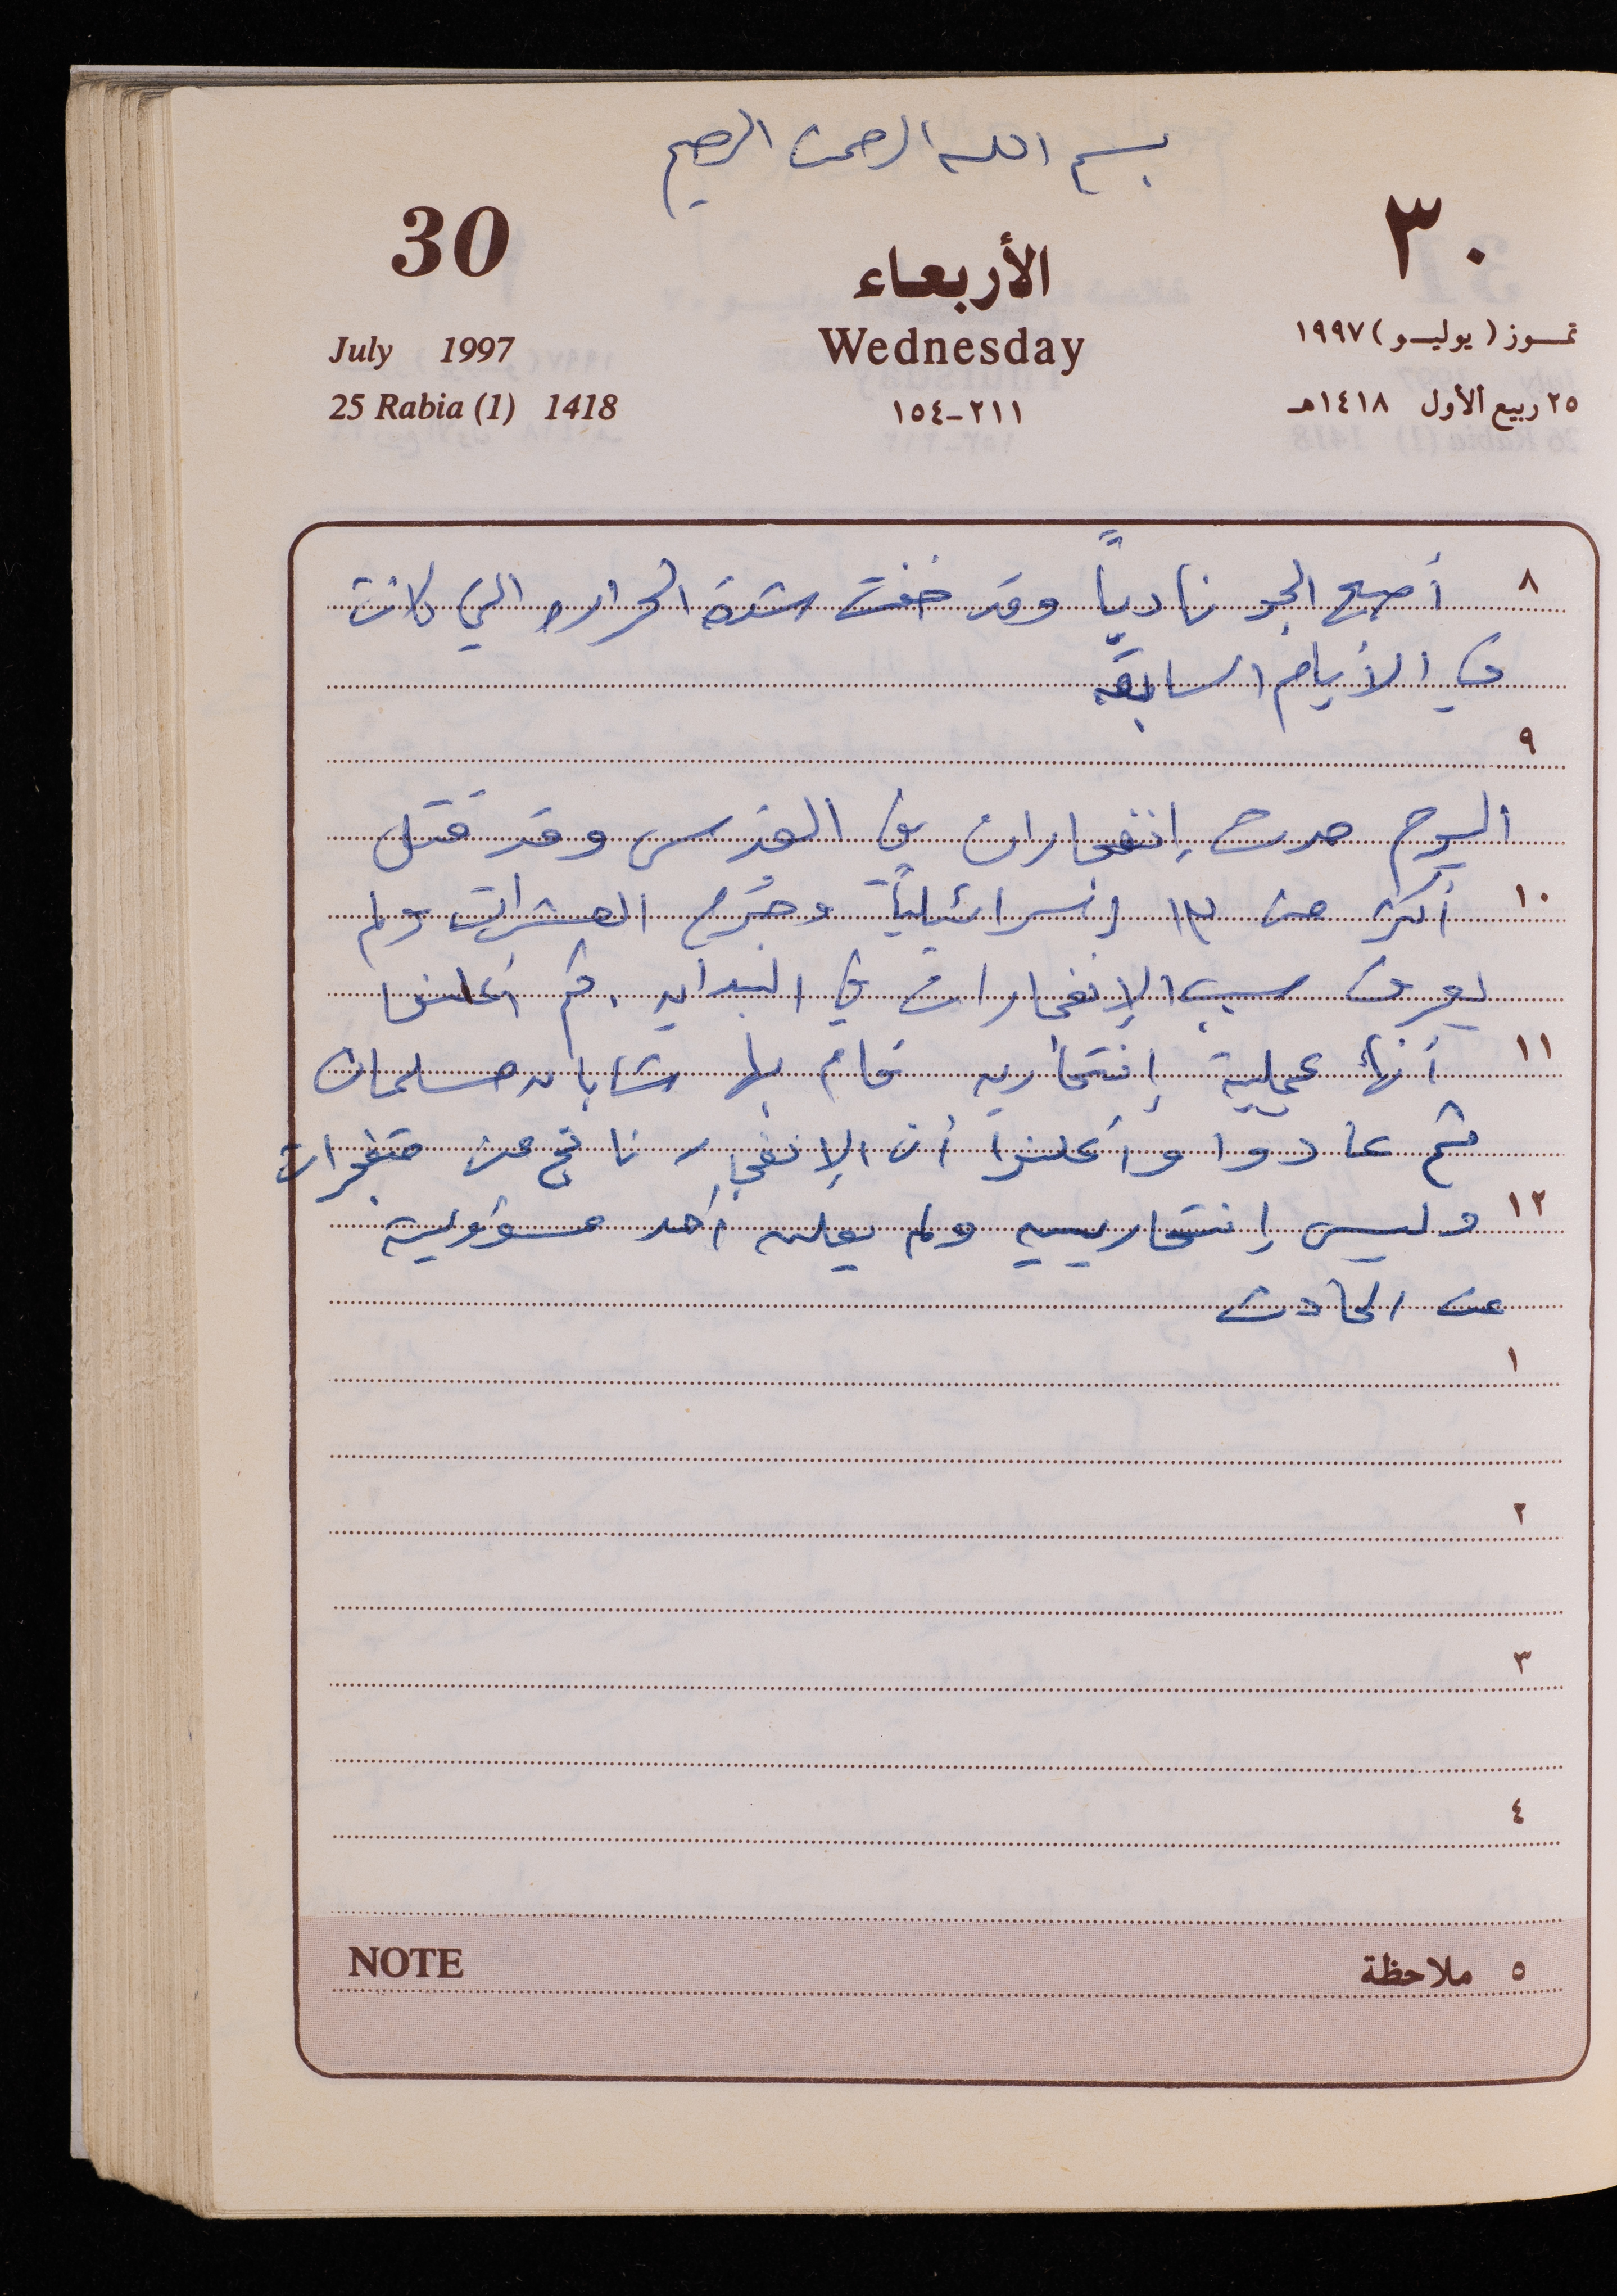 بسم الله الرحمن الرحيم
30
الأربعاء
٣٠
July 1997
Wednesday
تمـوز (يوليـو) ١٩٩٧
25 Rabia (1) 1418
١٥٤-٢١١
٢٥ ربيع الأول ١٤١٨هـ
٨ أصبح الجو نادياً وقد خفت شدة الحراره التي كانت
في الأيام السابقه
٩
اليوم حدث إنفجاران في القدس وقد قتل
١٠ أكثر من ١٣ إسرائيلياً وجُرح العشرات ولم
يعرف سبب الإنفجارات في البدايه . ثم أعلنوا
١١ أنها عملية إنتحاريه قام بها شابان مسلمان
ثم عادوا وأعلنوا أن الإنفجار ناتج عن متفجرات
١٢ وليس إنتحاريييه ولم يعلن أحد مسؤوليته
عن الحادث
١
٢
٣
٤
NOTE
٥ ملاحظة